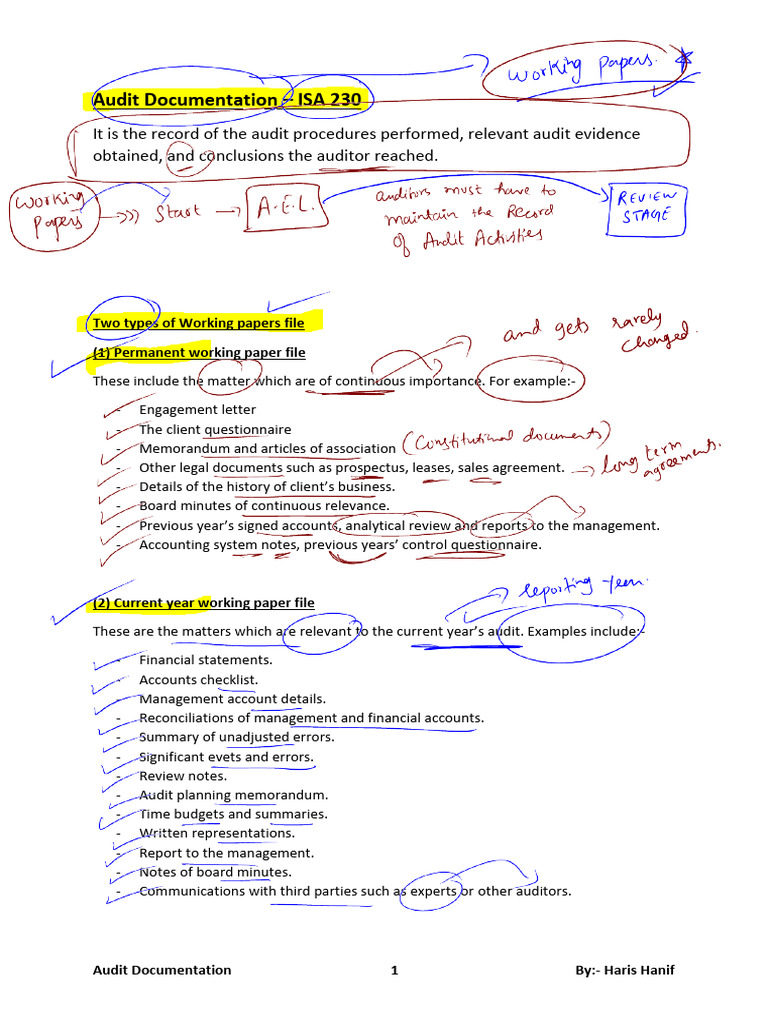 Working papers.
Audit Documentation – ISA 230
It is the record of the audit procedures performed, relevant audit evidence
obtained, and conclusions the auditor reached.
Working
Papers
Start
A.E.L.
auditors must have to
maintain the Record
of Audit Activities
REVIEW
STAGE
Two types of Working papers file
and gets rarely
changed.
(1) Permanent working paper file
These include the matter which are of continuous importance. For example:-
- Engagement letter
- The client questionnaire
- Memorandum and articles of association (Constitutional documents)
- Other legal documents such as prospectus, leases, sales agreement. → long term
agreements.
- Details of the history of client's business.
- Board minutes of continuous relevance.
- Previous year's signed accounts, analytical review and reports to the management.
- Accounting system notes, previous years' control questionnaire.
reporting year.
(2) Current year working paper file
These are the matters which are relevant to the current year's audit. Examples include:-
- Financial statements.
- Accounts checklist.
- Management account details.
- Reconciliations of management and financial accounts.
- Summary of unadjusted errors.
- Significant evets and errors.
- Review notes.
- Audit planning memorandum.
- Time budgets and summaries.
- Written representations.
- Report to the management.
- Notes of board minutes.
- Communications with third parties such as experts or other auditors.
Audit Documentation 1 By:- Haris Hanif